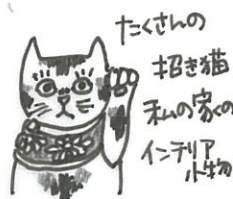 たくさんの
招き猫
私の家の
インテリア
小物